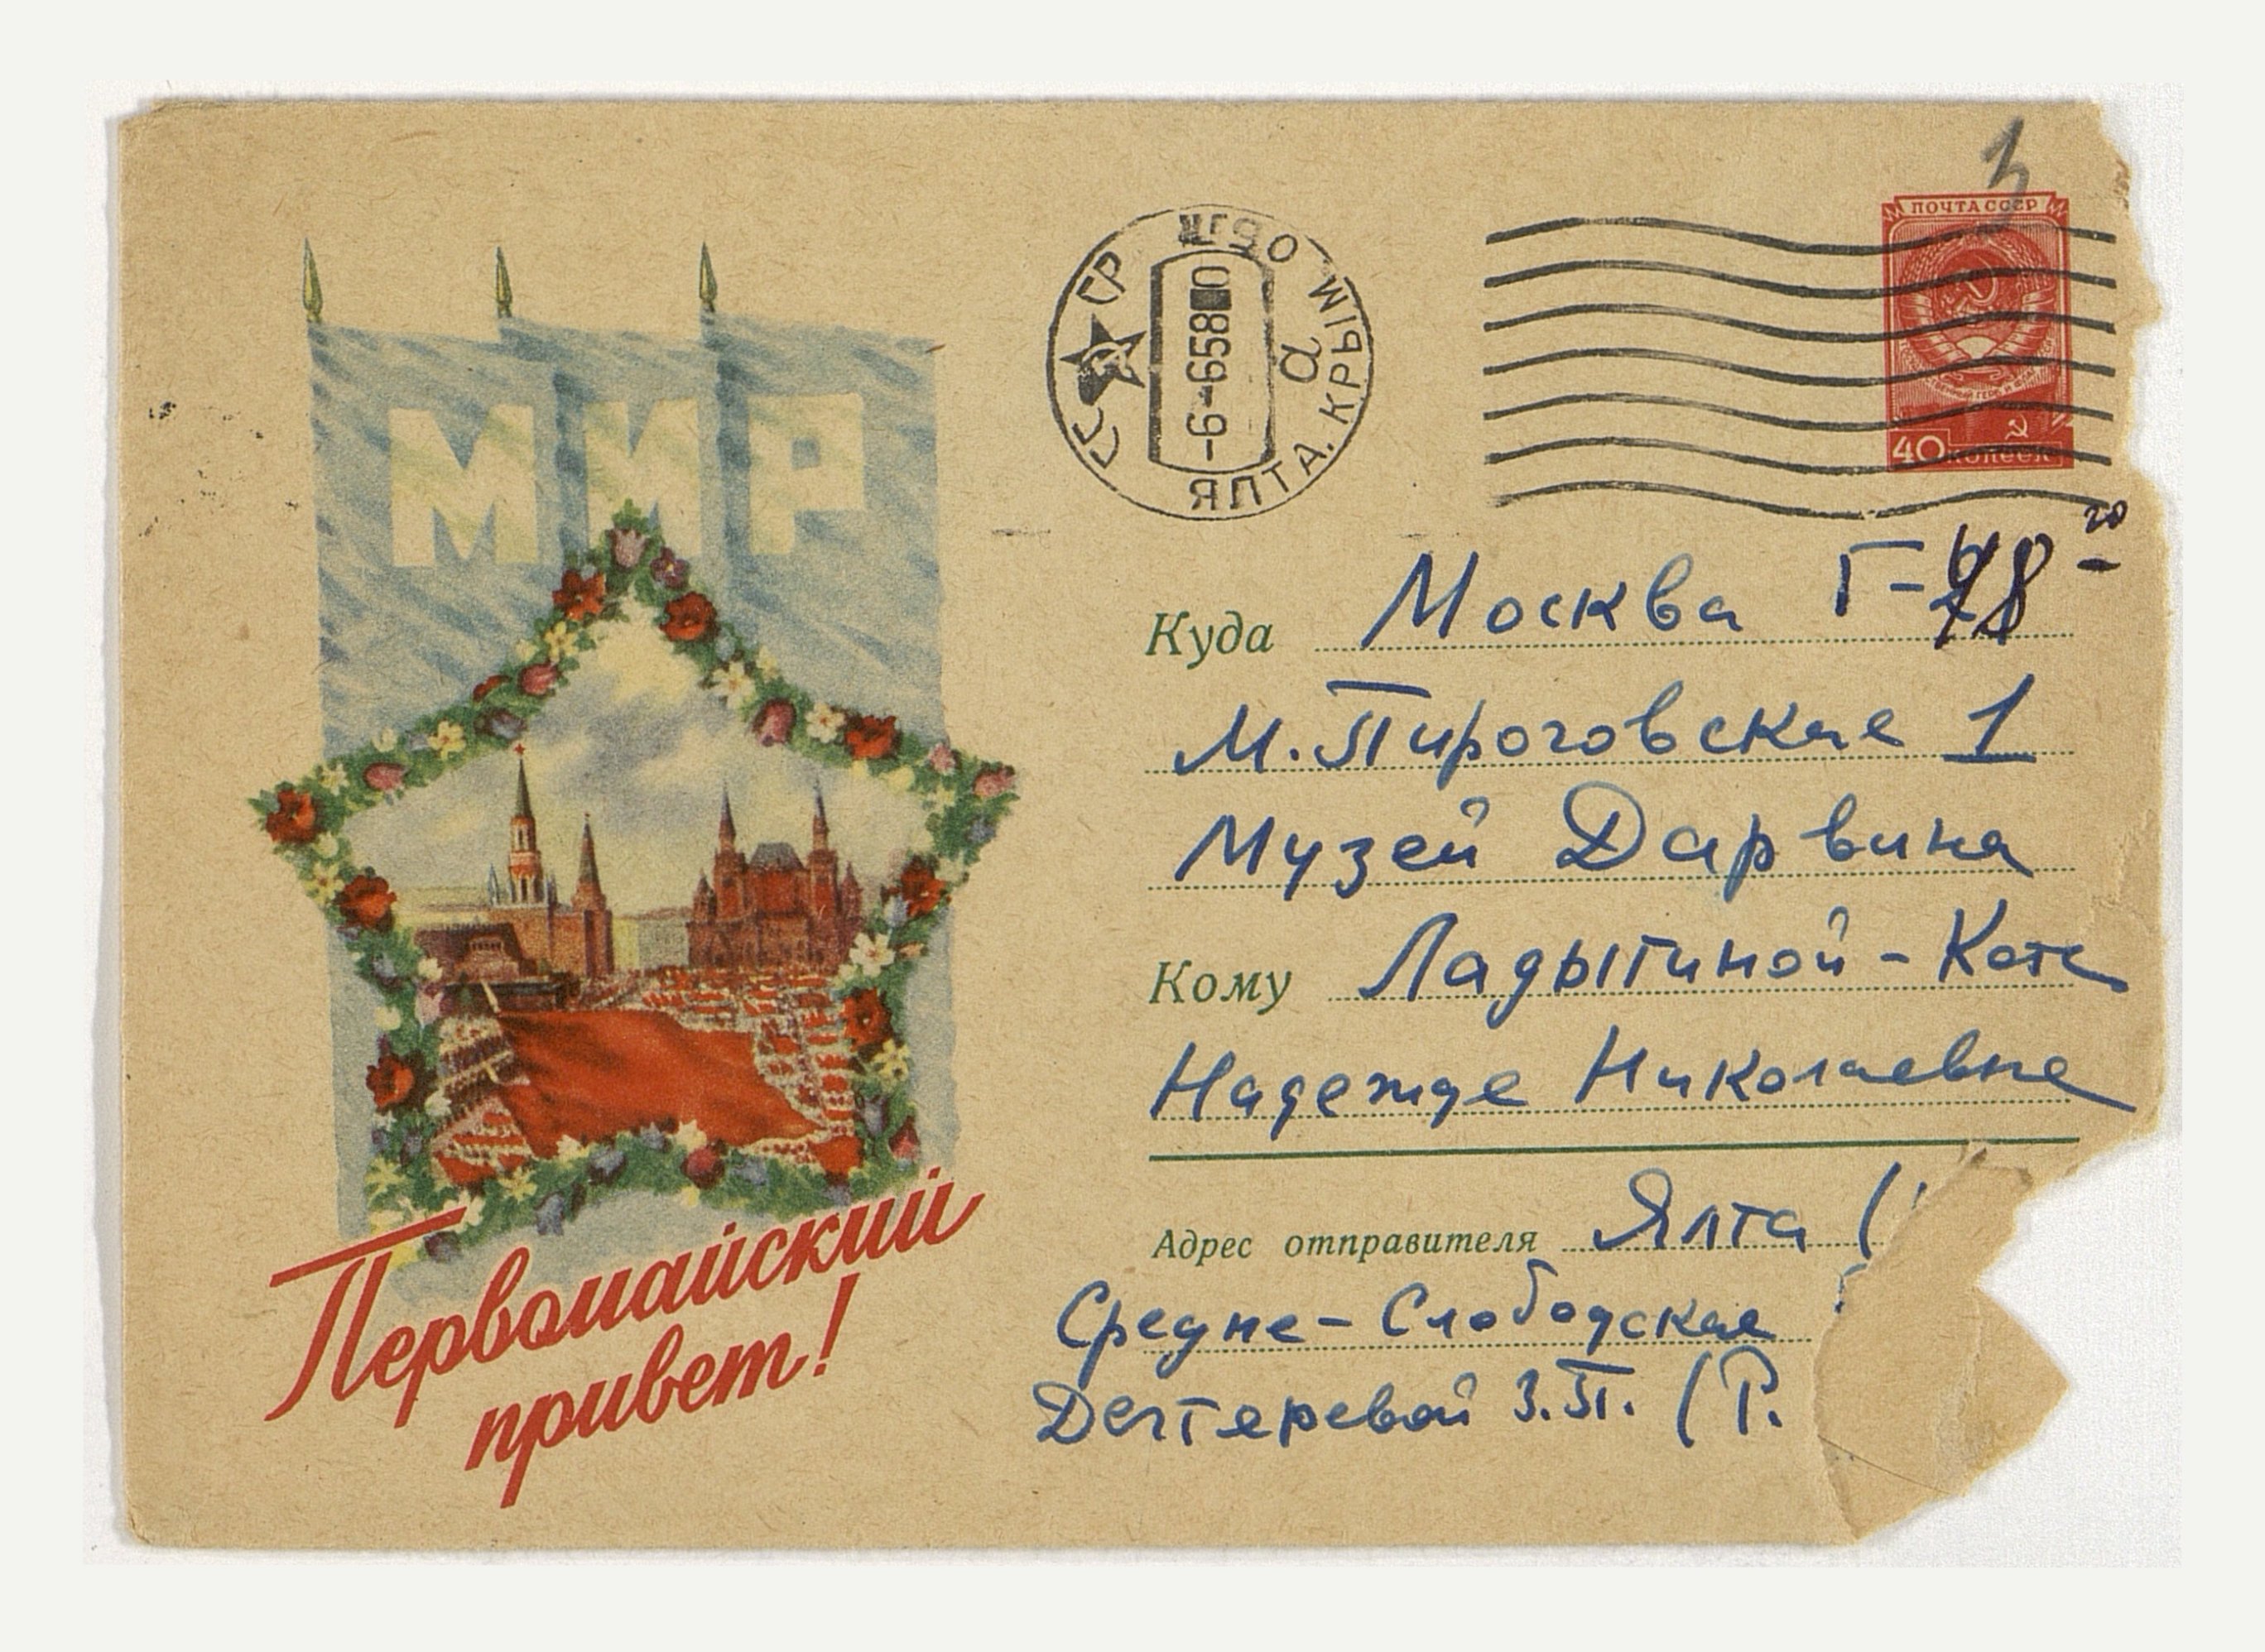 МИР
Первомайский
привет!
СССР
ЯЛТА. КРЫМ ОБЛ.
-6-658
а
ПОЧТА СССР
40 КОПЕЕК
3
Куда Москва Г-48
М. Пироговская 1
Музей Дарвина
Кому Ладыгиной-Котс
Надежде Николаевне
Адрес отправителя Ялта (
Средне-Слободская
Дегтеревой З.П. (Р.